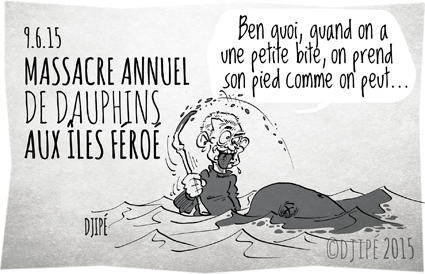 9.6.15
MASSACRE ANNUEL
DE DAUPHINS
AUX ÎLES FÉROÉ
Ben quoi, quand on a
une petite bite, on prend
son pied comme on peut...
DJIPÉ
©DJIPÉ 2015